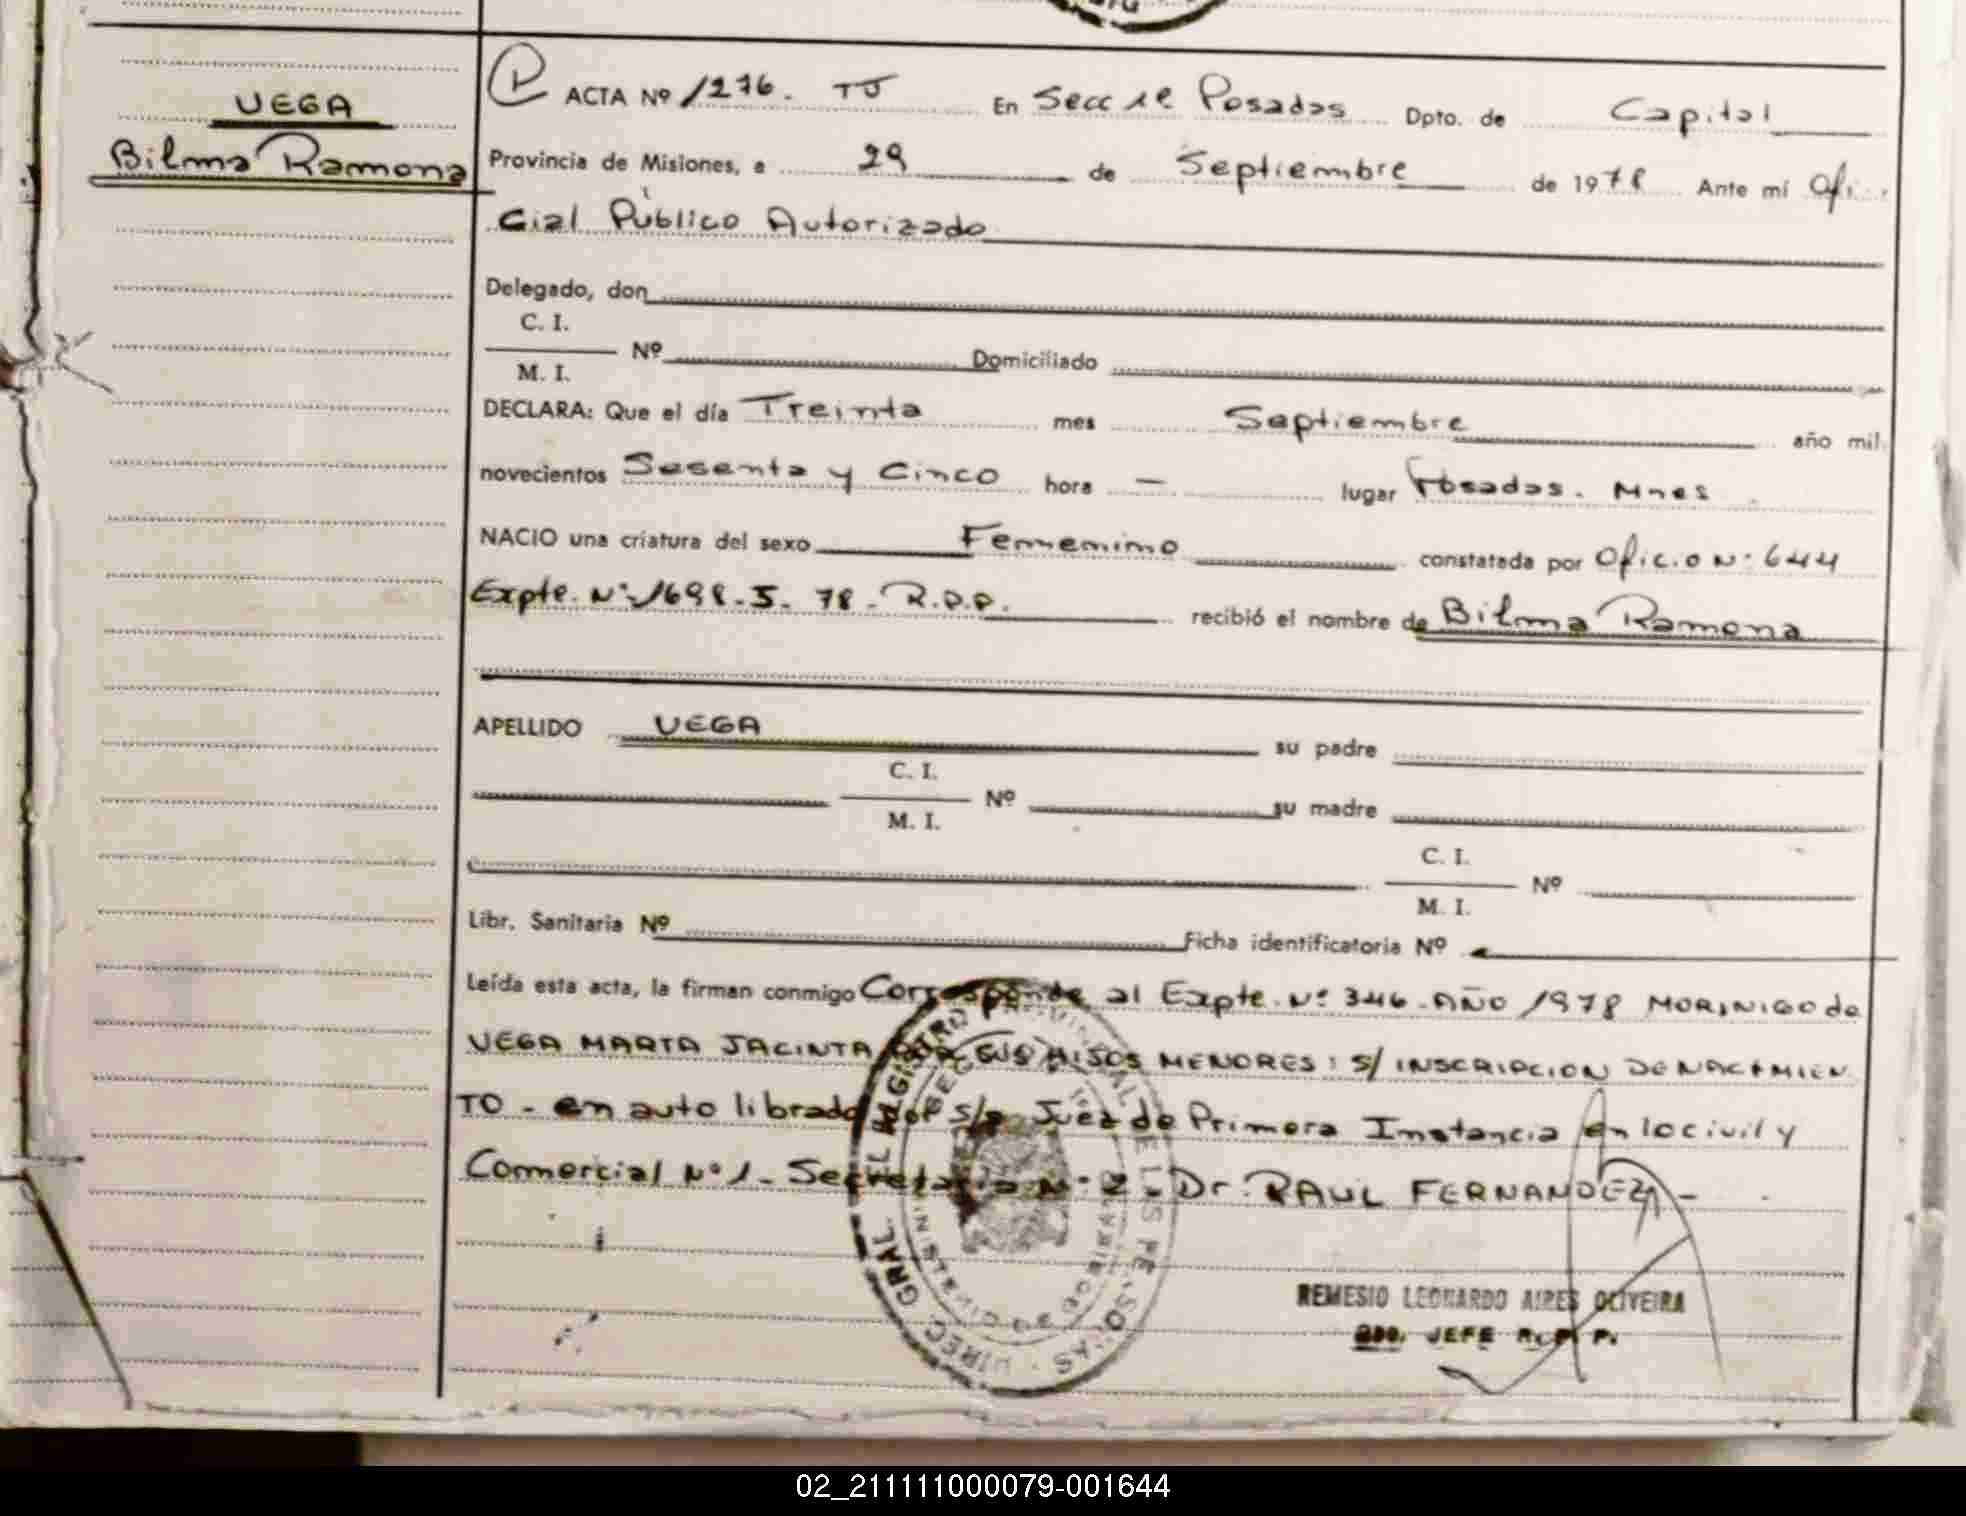 VEGA
Bilma Ramona
ACTA Nº 1276. TJ En Secc 1e Posadas Dpto. de Capital
Provincia de Misiones, a 29 de Septiembre de 1978 Ante mí Ofi
cial Público Autorizado
Delegado, don
C. I.
M. I. Nº Domiciliado
DECLARA: Que el día Treinta mes Septiembre año mil
novecientos Sesenta y Cinco hora — lugar Posadas. Mnes
NACIO una criatura del sexo Femenino constatada por Oficio Nº 644
Expte. Nº 1698-S-78-R.P.P. recibió el nombre de Bilma Ramona
APELLIDO VEGA su padre
C. I.
M. I. Nº su madre
C. I.
M. I. Nº
Libr. Sanitaria Nº Ficha identificatoria Nº
Leída esta acta, la firman conmigo Corresponde al Expte. Nº 346-AÑO 1978 MORINIGO de
VEGA MARTA JACINTA POR SUS HIJOS MENORES: S/ INSCRIPCION DE NACIMIEN
TO - en auto librado por s/s Juez de Primera Instancia en lo civil y
Comercial Nº 1 - Secretaria Nº 2 - Dr. RAUL FERNANDEZ -
DIREC. GRAL. DEL REGISTRO PROVINCIAL DE LAS PERSONAS
REMESIO LEONARDO AIRES OLIVEIRA
JEFE R. P. P.
02_211111000079-001644